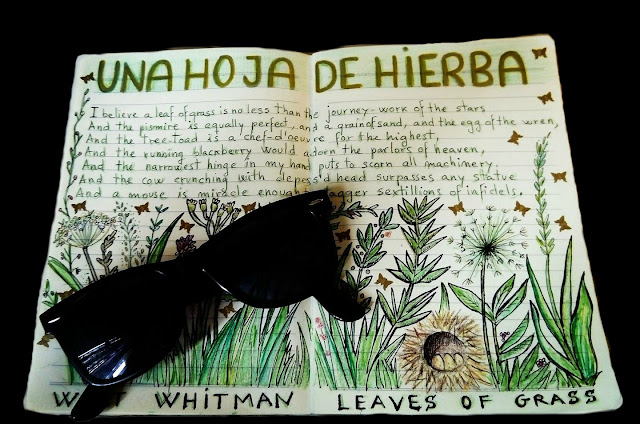 UNA HOJA DE HIERBA
I believe a leaf of grass is no less than the journey-work of the stars
And the pismire is equally perfect, and a grain of sand, and the egg of the wren,
And the Tree-Toad is a chef-d'oeuvre for the highest,
And the running blackberry would adorn the parlors of heaven,
And the narrowest hinge in my hand puts to scorn all machinery.
And the cow crunching with depess'd head surpasses any statue
And a mouse is miracle enough agger sextillions of infidels.
WHITMAN LEAVES OF GRASS